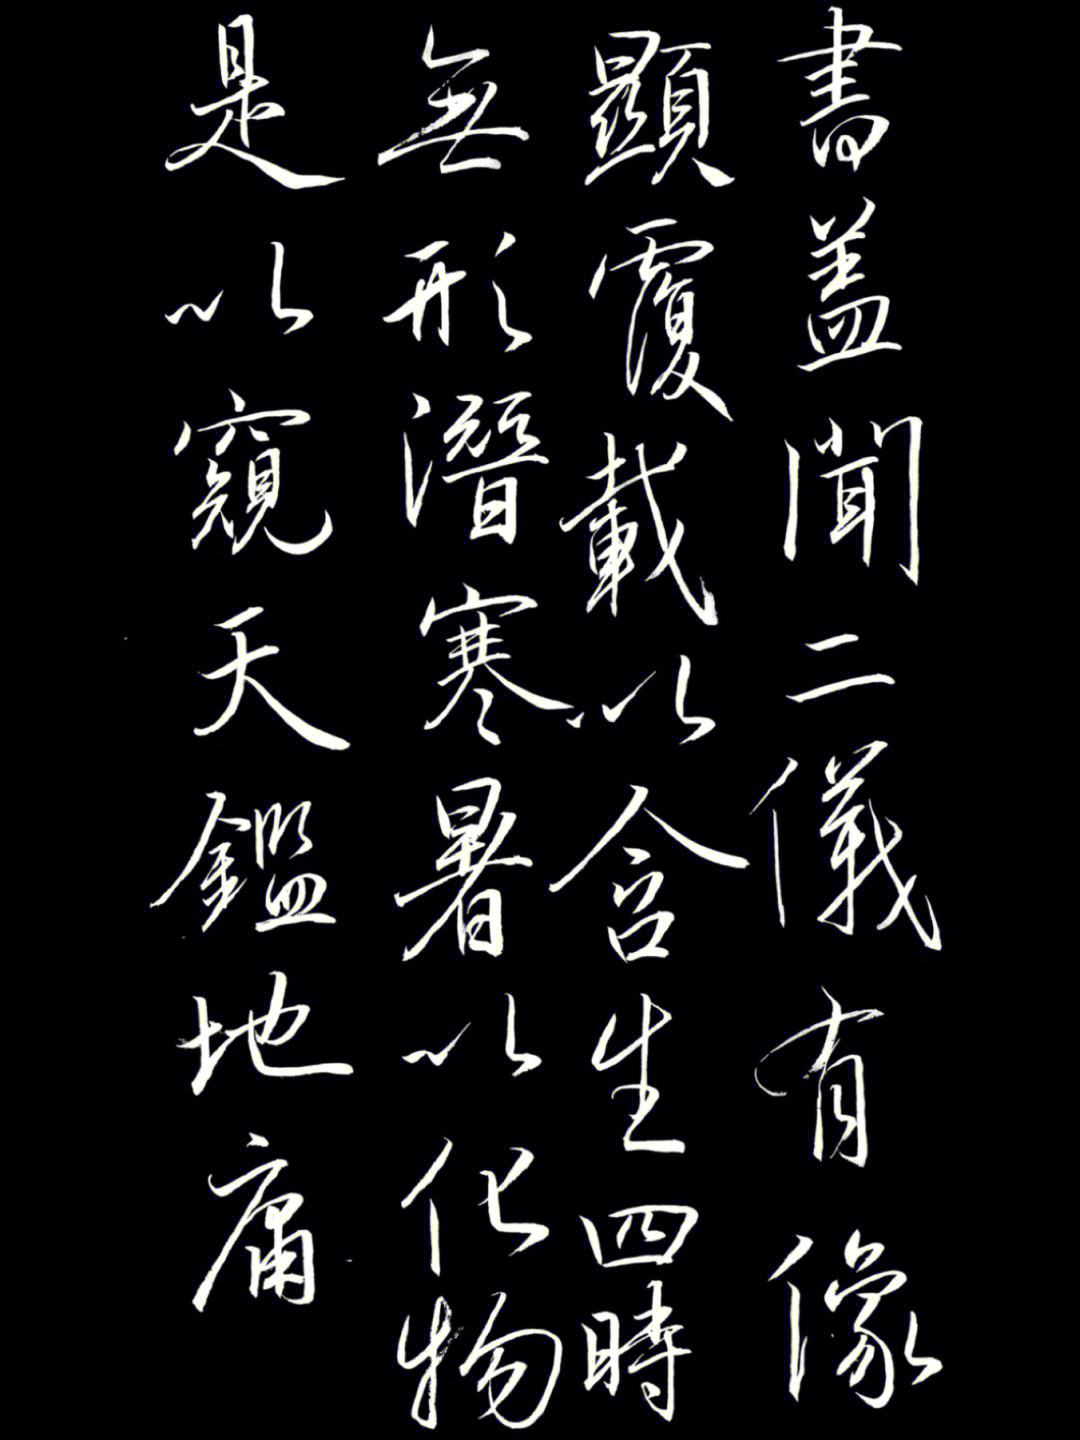 書蓋聞二儀有像
顯覆載以含生四時
無形潛寒暑以化物
是以窺天鑑地庸